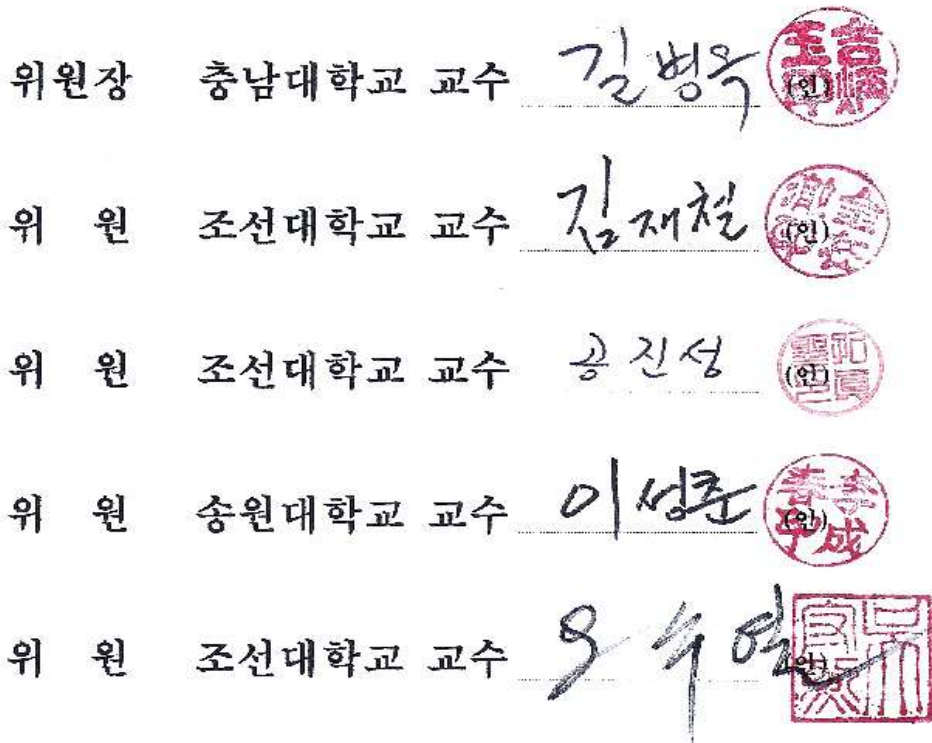 위원장 충남대학교 교수 길병옥 (인)
위 원 조선대학교 교수 김재철 (인)
위 원 조선대학교 교수 공진성 (인)
위 원 송원대학교 교수 이성춘 (인)
위 원 조선대학교 교수 오수열 (인)